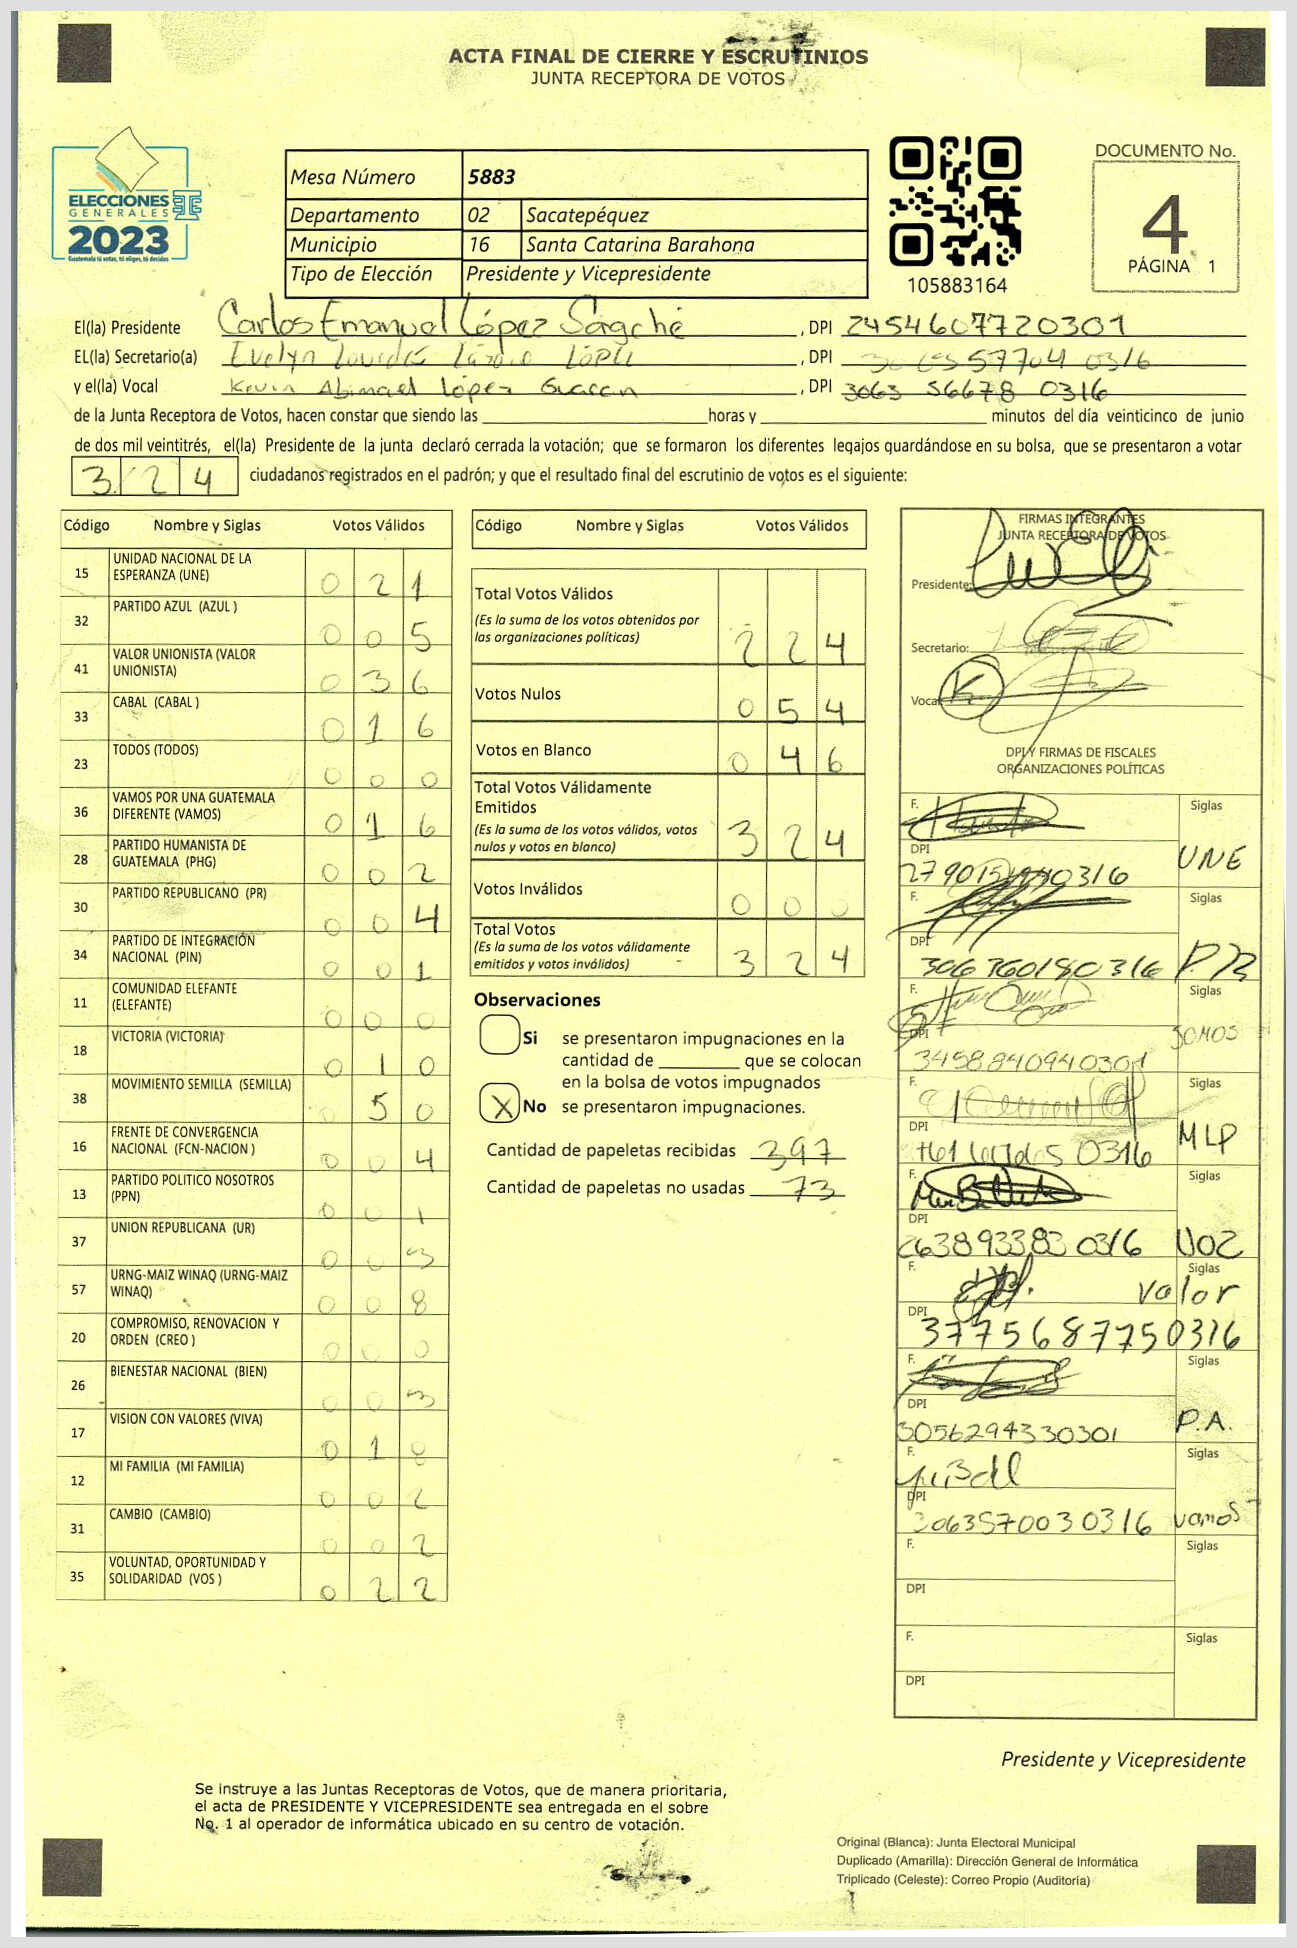 ACTA FINAL DE CIERRE Y ESCRUTINIOS
JUNTA RECEPTORA DE VOTOS
ELECCIONES
GENERALES
2023
Guatemala tú votas, tú eliges, tú decides
Mesa Número 5883
Departamento 02 Sacatepéquez
Municipio 16 Santa Catarina Barahona
Tipo de Elección Presidente y Vicepresidente
105883164
DOCUMENTO No.
4
PÁGINA 1
El(la) Presidente Carlos Emanuel López , DPI 2454607720301
EL(la) Secretario(a) Evelyn Lourdes López , DPI
y el(la) Vocal Kevin Abimael López , DPI 3063 56678 0316
de la Junta Receptora de Votos, hacen constar que siendo las horas y minutos del día veinticinco de junio
de dos mil veintitrés, el(la) Presidente de la junta declaró cerrada la votación; que se formaron los diferentes legajos guardándose en su bolsa, que se presentaron a votar
3 2 4 ciudadanos registrados en el padrón; y que el resultado final del escrutinio de votos es el siguiente:
Código Nombre y Siglas Votos Válidos
15 UNIDAD NACIONAL DE LA ESPERANZA (UNE) 0 2 1
32 PARTIDO AZUL (AZUL ) 0 0 5
41 VALOR UNIONISTA (VALOR UNIONISTA) 0 3 6
33 CABAL (CABAL ) 0 1 6
23 TODOS (TODOS) 0 0 0
36 VAMOS POR UNA GUATEMALA DIFERENTE (VAMOS) 0 1 6
28 PARTIDO HUMANISTA DE GUATEMALA (PHG) 0 0 2
30 PARTIDO REPUBLICANO (PR) 0 0 4
34 PARTIDO DE INTEGRACIÓN NACIONAL (PIN) 0 0 1
11 COMUNIDAD ELEFANTE (ELEFANTE) 0 0 0
18 VICTORIA (VICTORIA) 0 1 0
38 MOVIMIENTO SEMILLA (SEMILLA) 0 5 0
16 FRENTE DE CONVERGENCIA NACIONAL (FCN-NACION ) 0 0 4
13 PARTIDO POLITICO NOSOTROS (PPN) 0 0 1
37 UNION REPUBLICANA (UR) 0 0 3
57 URNG-MAIZ WINAQ (URNG-MAIZ WINAQ) 0 0 8
20 COMPROMISO, RENOVACION Y ORDEN (CREO ) 0 0 0
26 BIENESTAR NACIONAL (BIEN) 0 0 3
17 VISION CON VALORES (VIVA) 0 1
12 MI FAMILIA (MI FAMILIA) 0 0 2
31 CAMBIO (CAMBIO) 0 0 2
35 VOLUNTAD, OPORTUNIDAD Y SOLIDARIDAD (VOS ) 0 2 2
Código Nombre y Siglas Votos Válidos
Total Votos Válidos
(Es la suma de los votos obtenidos por
las organizaciones políticas) 2 2 4
Votos Nulos 0 5 4
Votos en Blanco 0 4 6
Total Votos Válidamente
Emitidos
(Es la suma de los votos válidos, votos
nulos y votos en blanco) 3 2 4
Votos Inválidos 0 0 0
Total Votos
(Es la suma de los votos válidamente
emitidos y votos inválidos) 3 2 4
Observaciones
Si se presentaron impugnaciones en la
cantidad de que se colocan
en la bolsa de votos impugnados
X No se presentaron impugnaciones.
Cantidad de papeletas recibidas 397
Cantidad de papeletas no usadas 73
FIRMAS INTEGRANTES
JUNTA RECEPTORA DE VOTOS
Presidente:
Secretario:
Vocal
DPI Y FIRMAS DE FISCALES
ORGANIZACIONES POLÍTICAS
F. Siglas
DPI UNE
F. Siglas
DPI
3063601800316 P.R
F. Siglas
DPI SOMOS
3458840940301
F. Siglas
DPI MLP
0316
F. Siglas
DPI
2638933830316 VOZ
F. Siglas
Valor
DPI
3775687750316
F. Siglas
DPI
3056294330301 P.A.
F. Siglas
DPI
3063570030316 vamos
F. Siglas
DPI
F. Siglas
DPI
Presidente y Vicepresidente
Se instruye a las Juntas Receptoras de Votos, que de manera prioritaria,
el acta de PRESIDENTE Y VICEPRESIDENTE sea entregada en el sobre
No. 1 al operador de informática ubicado en su centro de votación.
Original (Blanca): Junta Electoral Municipal
Duplicado (Amarilla): Dirección General de Informática
Triplicado (Celeste): Correo Propio (Auditoría)